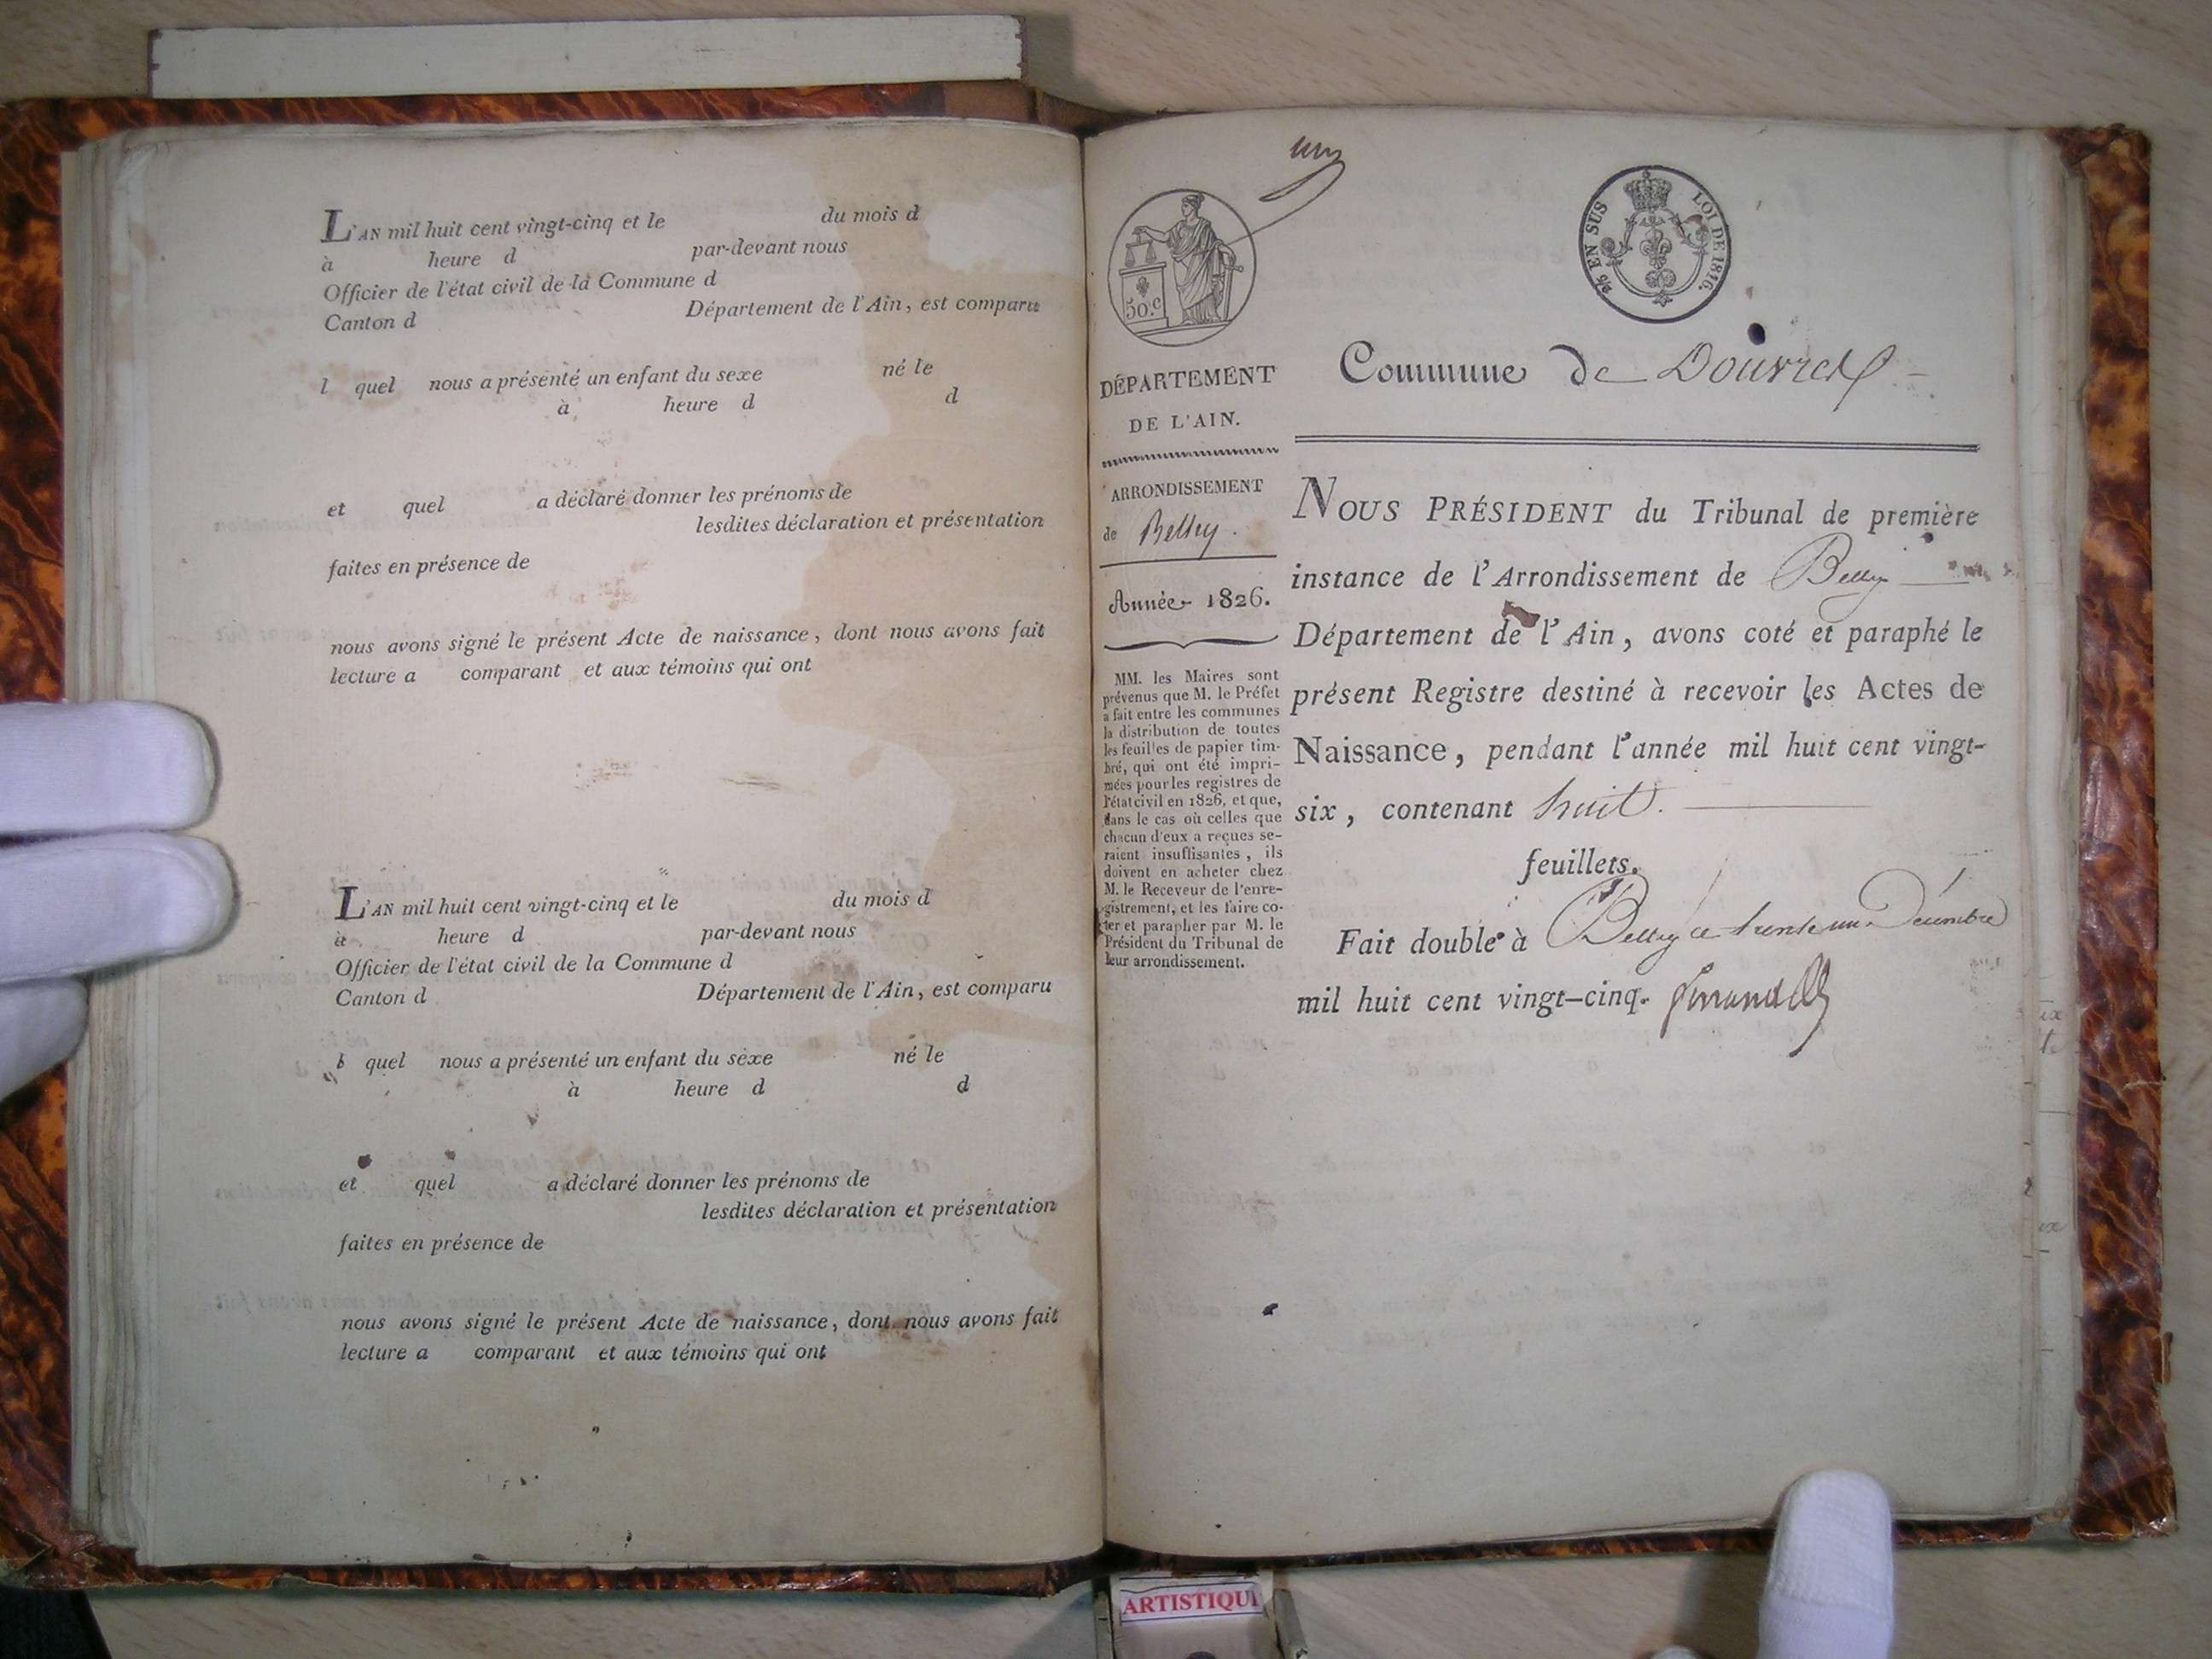 L'AN mil huit cent vingt-cinq et le du mois d
à heure d par-devant nous
Officier de l'état civil de la Commune d
Canton d Département de l'Ain, est comparu
l quel nous a présenté un enfant du sexe né le
à heure d d
et quel a déclaré donner les prénoms de
lesdites déclaration et présentation
faites en présence de
nous avons signé le présent Acte de naissance, dont nous avons fait
lecture a comparant et aux témoins qui ont
L'AN mil huit cent vingt-cinq et le du mois d
à heure d par-devant nous
Officier de l'état civil de la Commune d
Canton d Département de l'Ain, est comparu
l quel nous a présenté un enfant du sexe né le
à heure d d
et quel a déclaré donner les prénoms de
lesdites déclaration et présentation
faites en présence de
nous avons signé le présent Acte de naissance, dont nous avons fait
lecture a comparant et aux témoins qui ont
un
50.c
EN SUS LOI DE 1816.
DÉPARTEMENT
DE L'AIN.
ARRONDISSEMENT
de Belley.
Année 1826.
MM. les Maires sont
prévenus que M. le Préfet
a fait entre les communes
la distribution de toutes
les feuilles de papier tim-
bré, qui ont été impri-
mées pour les registres de
l'état civil en 1826, et que,
dans le cas où celles que
chacun d'eux a reçues se-
raient insuffisantes, ils
doivent en acheter chez
M. le Receveur de l'enre-
gistrement, et les faire co-
ter et parapher par M. le
Président du Tribunal de
leur arrondissement.
Commune de Douvres
NOUS PRÉSIDENT du Tribunal de première
instance de l'Arrondissement de Belley
Département de l'Ain, avons coté et paraphé le
présent Registre destiné à recevoir les Actes de
Naissance, pendant l'année mil huit cent vingt-
six, contenant huit.
feuillets.
Fait double à Belley ce trente un Décembre
mil huit cent vingt-cinq.
ARTISTIQU